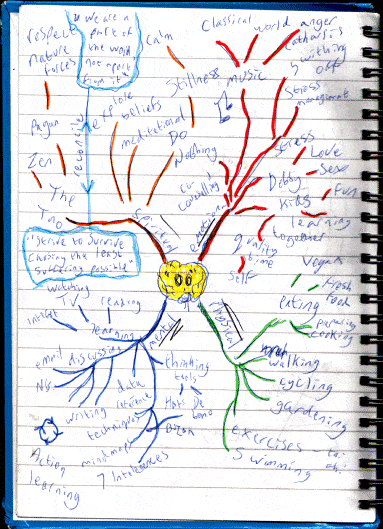 "We are a
part of
the world
not apart
from it"
respect
nature
forces
Calm
Classical
world
anger
catharsis
switching
off
music
Stress
management
Stillness
explore
beliefs
meditational
Do
Nothing
reconcile
Pagan
Zen
The
Tao
spiritual
emotional
co-
counselling
stress
Love
Sex
Debby
Fun
Kids
learning
together
quality
time
Self
"Strive to Survive
causing the least
suffering possible"
watching
TV
reading
Internet
learning
mental
physical
email
discussing
NGs
data
writing
techniques
mindmaps
7 Intelligences
Action
learning
thinking
tools
Hats De
Bono
Buzan
Vegan
Fresh
food
eating
cooking
walking
cycling
gardening
exercises - tai
chi
Swimming